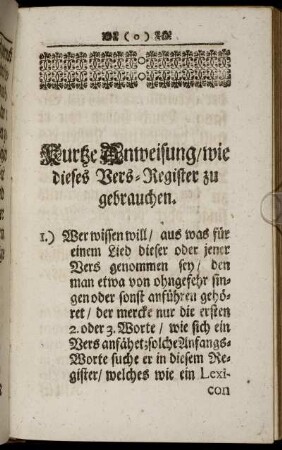 ( o )
Kurtze Anweisung/ wie
dieses Vers-Register zu
gebrauchen.
1.) Wer wissen will/ aus was für
einem Lied dieser oder jener
Vers genommen sey/ den
man etwa von ohngefehr sin-
gen oder sonst anführen gehö-
ret/ der mercke nur die ersten
2. oder 3. Worte/ wie sich ein
Vers anfähet; solche Anfangs-
Worte suche er in diesem Re-
gister/ welches wie ein Lexi-
con